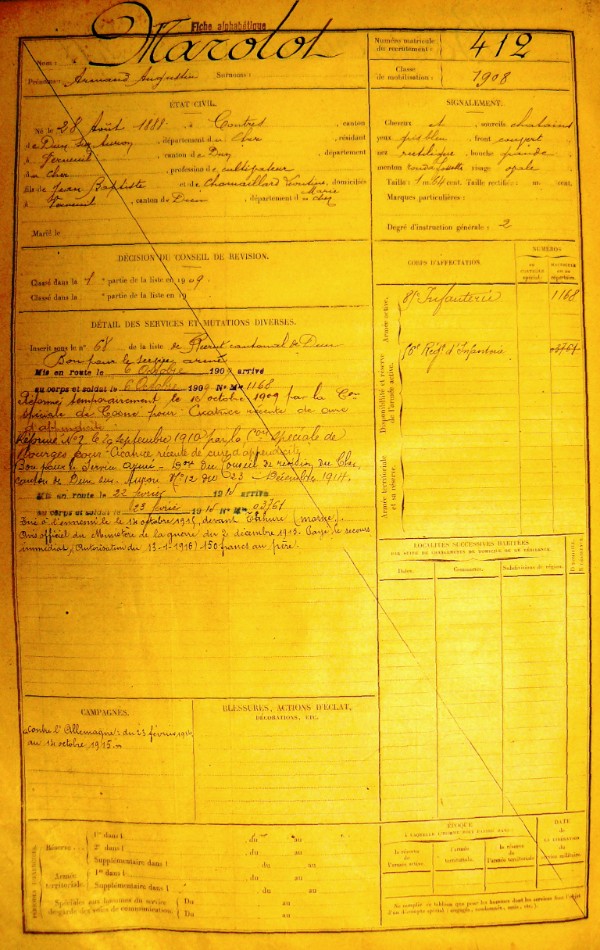 Fiche alphabétique
Nom : Marolot
Prénoms : Armand Augustin Surnoms :
Numéro matricule du recrutement : 412
Classe de mobilisation : 1908
ÉTAT CIVIL.
Né le 28 Août 1888, à Contres, canton
de Dun sur Auron, département du Cher, résidant
à Verneuil, canton de Dun, département
du Cher, profession de cultivateur
fils de Jean Baptiste et de Marie, domiciliés
à Verneuil, canton de Dun, département du Cher
Marié le
SIGNALEMENT.
Cheveux et sourcils chatains
yeux gris bleu, front
nez rectiligne, bouche grande
menton rond fossette visage ovale
Taille : 1m 64 cent. Taille rectifiée : m. cent.
Marques particulières :
Degré d'instruction générale : 2
DÉCISION DU CONSEIL DE RÉVISION.
Classé dans la 1e partie de la liste en 1909
Classé dans la e partie de la liste en 19
CORPS D'AFFECTATION.
NUMÉROS
au contrôle spécial.
matricule ou au répertoire.
Armée active.
Infanterie 1168
Disponibilité et réserve de l'armée active.
95e Régt d'Infanterie 03761
Armée territoriale et sa réserve.
DÉTAIL DES SERVICES ET MUTATIONS DIVERSES.
Inscrit sous le n° 68 de la liste de Recrut cantonal de Dun
Bon pour le service armé
Mis en route le 6 Octobre 1909 arrivé
au corps et soldat le 6 Octobre 1909 N° Mle 1168
Réformé temporairement le 13 octobre 1909 par la Con
spéciale de Cosne pour Cicatrice récente de cure
d'appendicite
Réformé N° 2 le 19 septembre 1910 par la Con Spéciale de
Bourges pour Cicatrice récente de cure d'appendicite
Bon pour le service armé Don du Conseil de révision du Cher,
canton de Dun sur Auron Décembre 1914.
Mis en route le 22 février arrivé
au corps et soldat le 23 février N° Mle 03761
Tué à l'ennemi le 14 octobre 1915, devant Tahure (Marne).
Avis officiel du Ministère de la guerre du 2 décembre 1915. Payé le secours
immédiat (Autorisation du 13-1-1916) 150 francs au père.
LOCALITÉS SUCCESSIVES HABITÉES
PAR SUITE DE CHANGEMENTS DE DOMICILE OU DE RÉSIDENCE.
Dates. Communes. Subdivisions de région.
CAMPAGNES.
Contre l'Allemagne : du 23 février
au 14 octobre 1915
BLESSURES, ACTIONS D'ÉCLAT,
DÉCORATIONS, ETC.
Réserve...
1re dans l , du au
2e dans l , du au
Supplémentaire dans l , du au
Armée territoriale.
1re dans l , du au
Supplémentaire dans l , du au
Spéciales aux hommes du service de garde des voies de communication.
Du au
Du au
ÉPOQUE
À LAQUELLE L'HOMME DOIT PASSER DANS :
la réserve de l'armée active.
l'armée territoriale.
la réserve de l'armée territoriale.
DATE
de la libération du service militaire.